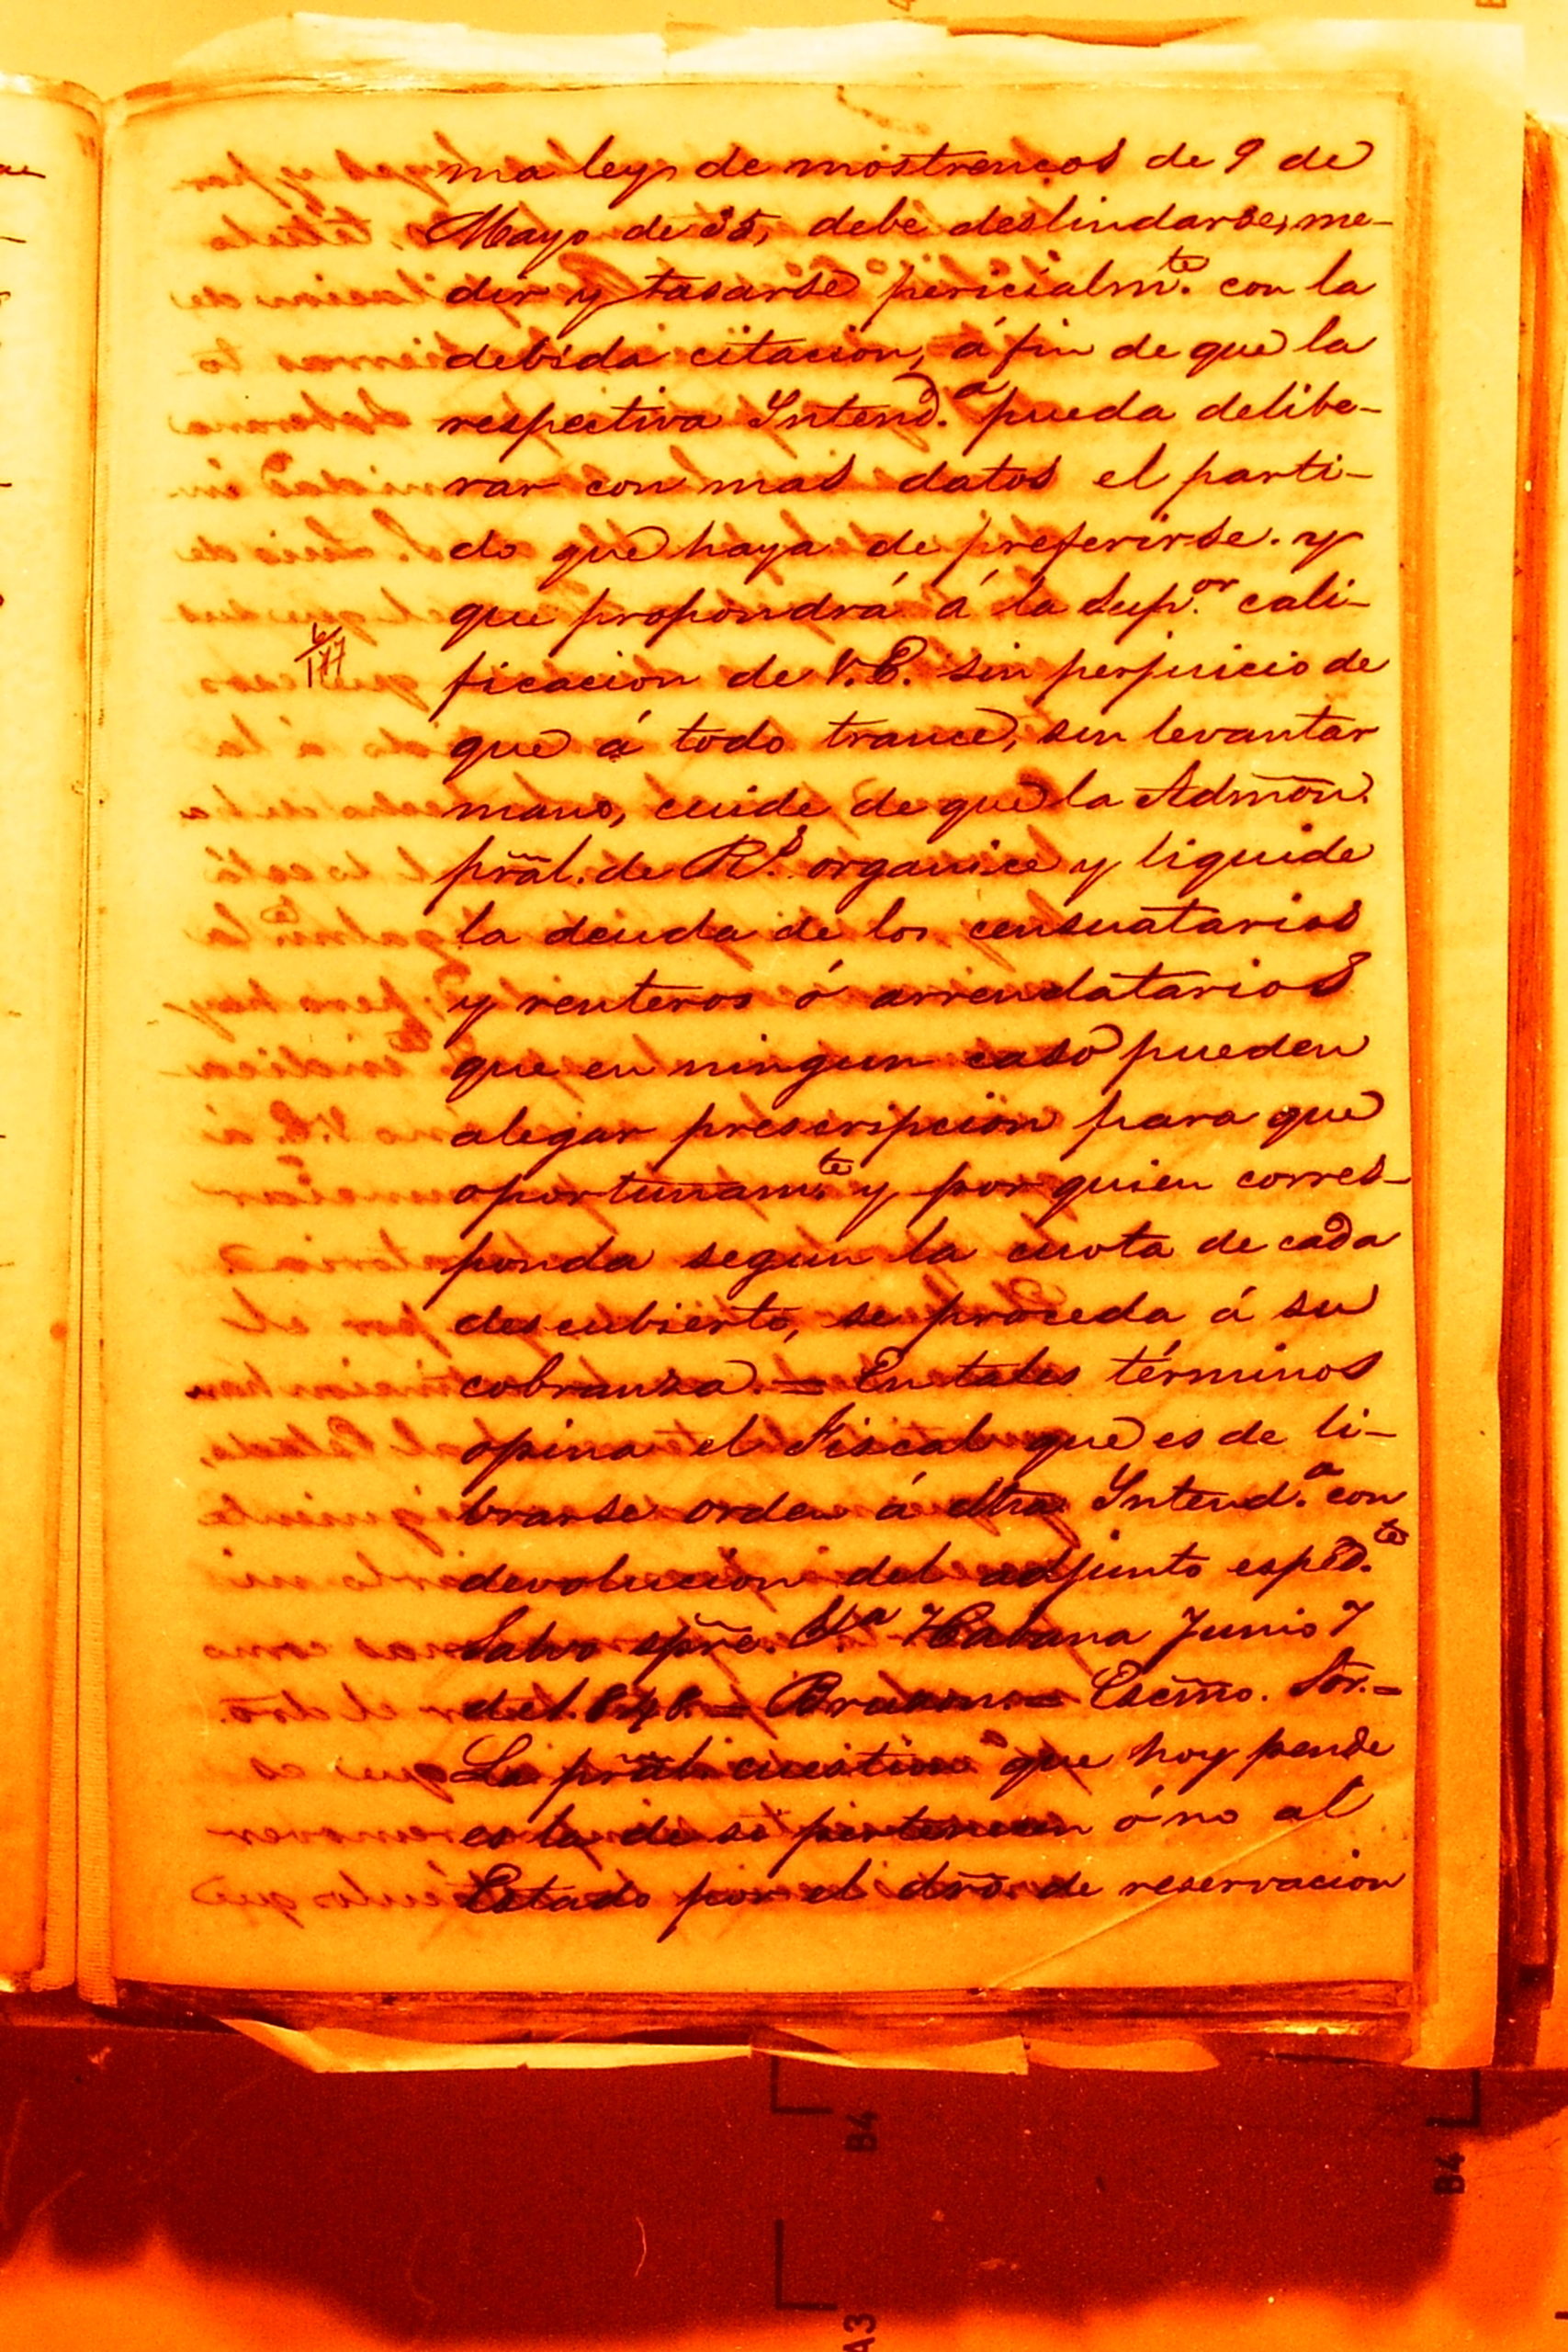 ma ley de mostrencos de 9 de
Mayo de 35, debe deslindarse, me-
dir y tasarse pericialm.te con la
debida citacion, á fin de que la
respectiva Intend.a pueda delibe-
rar con mas datos el parti-
do que haya de preferirse. y
que propondrá á la Sup.or cali-
ficacion de V.E. sin perjuicio de
que á todo trance, sin levantar
mano, cuide de que la Admōn.
prãl. de R.s organice y liquide
la deuda de los censuatarios
y renteros ó arrendatarios
que en ningun caso pueden
alegar prescripcion para que
oportunam.te y por quien corres-
ponda segun la cuota de cada
descubierto, se proceda á su
cobranza. = En tales términos
opina el Fiscal que es de li-
brarse orden á dha Intend.a con
devolucion del adjunto esped.te
Salvo spre. Habana Junio 7
de 1.848. = Escmo. Sor. =
La prãl cuestion que hoy pende
es la de si pertenecen ó no al
Estado por el dro. de reservacion
6/177
B4
B4
A3